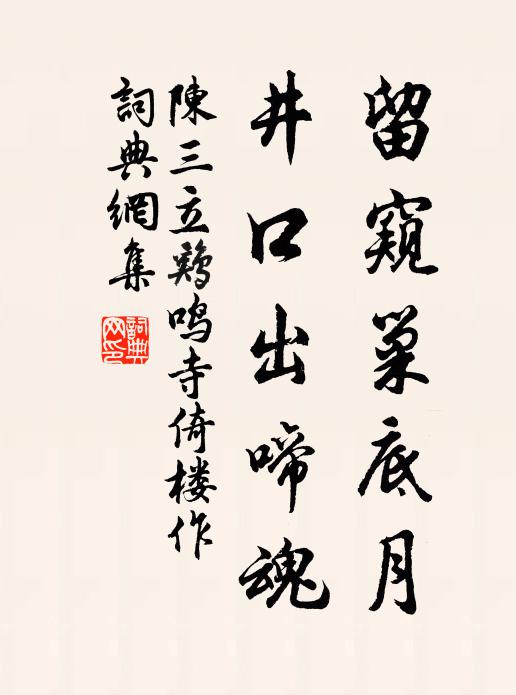 留窺巢底月
井口出啼魂
陳三立鷄鳴寺倚楼作
詞典網集
詞典網印